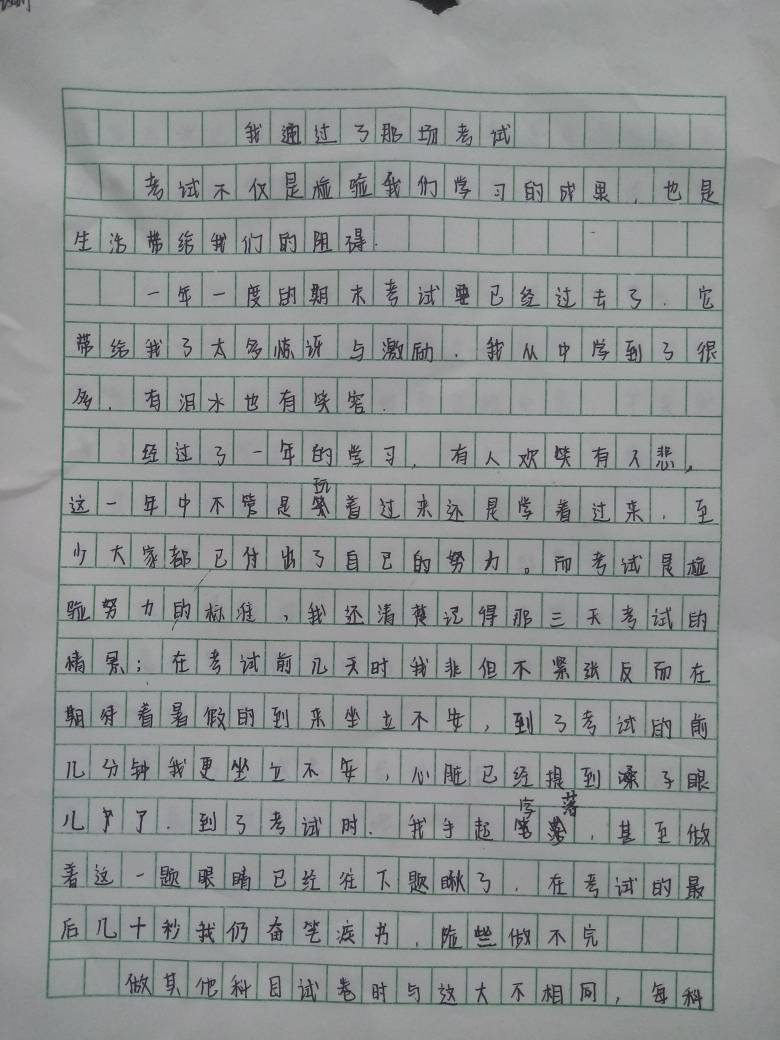 我通过了那场考试
考试不仅是检验我们学习的成果，也是
生活带给我们的阻碍.
一年一度的期末考试要已经过去了.它
带给我了太多惊讶与激励.我从中学到了很
多.有泪水也有笑容.
经过了一年的学习，有人欢笑有人悲,
这一年中不管是玩着过来还是学着过来.至
少大家都已付出了自己的努力。而考试是检
验努力的标准，我还清楚记得那三天考试的
情景；在考试前几天时我非但不紧张反而在
期待着暑假的到来坐立不安，到了考试的前
几分钟我更坐立不安，心脏已经提到嗓子眼
儿了.到了考试时.我手起字落，甚至做
着这一题眼睛已经往下题瞅了.在考试的最
后几十秒我仍奋笔疾书，险些做不完
做其他科目试卷时与这大不相同，每科